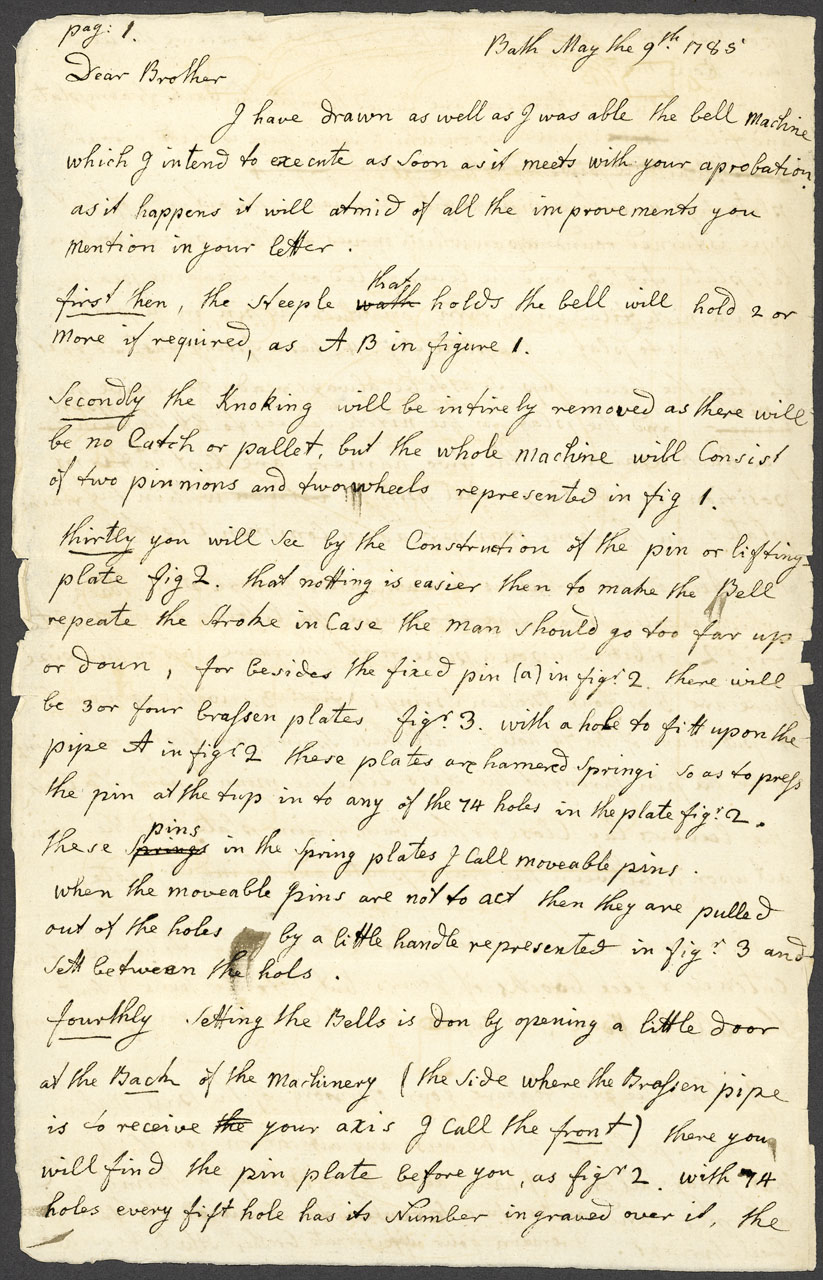 pag: 1.
Bath May the 9th 1785
Dear Brother
I have drawn as well as I was able the bell machine
which I intend to execute as soon as it meets with your aprobation.
as it happens it will atmid of all the improvements you
mention in your letter.
first then, the steeple wath that holds the bell will hold 2 or
more if required, as A B in figure 1.
Secondly the Knoking will be intirely removed as there will
be no Catch or pallet, but the whole machine will Consist
of two pinnions and two wheels represented in fig 1.
thirtly you will see by the Construction of the pin or lifting-
plate fig 2. that notting is easier then to make the Bell
repeate the stroke in Case the man should go too far up
or doun, for besides the fixed pin (a) in figr 2. there will
be 3 or four brassen plates figr 3. with a hole to fitt upon the
pipe A in figr 2 these plates are hamered springi so as to press
the pin at the tup in to any of the 74 holes in the plate figr 2.
these springs pins in the spring plates I Call moveable pins.
when the moveable pins are not to act then they are pulled
out of the holes by a little handle represented in figr 3 and
sett between the hols.
fourthly Setting the Bells is don by opening a little door
at the Back of the Machinery (the side where the Brassen pipe
is to receive the your axis I Call the front) there you
will find the pin plate before you, as figr 2. with 74
holes every fift hole has its Number ingraved over it, the